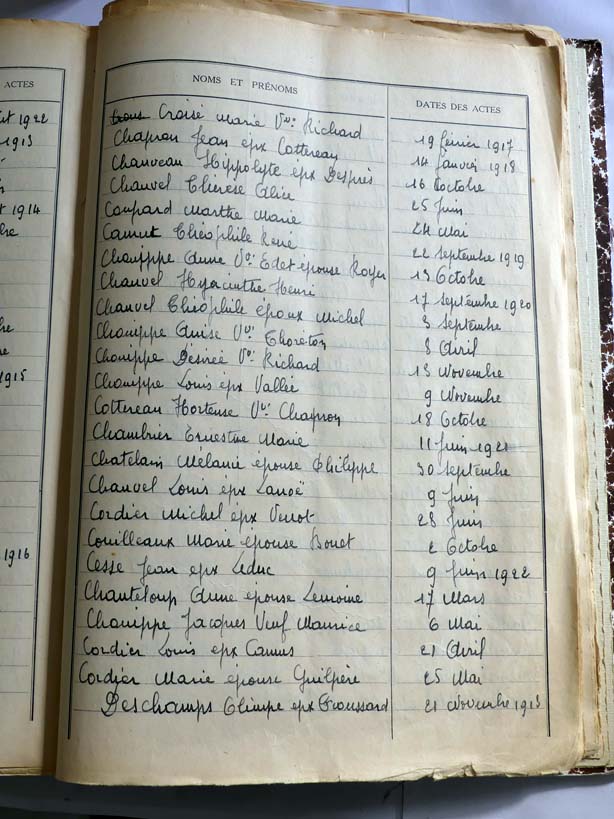 ACTES
1922
1913
1914
1915
1916
NOMS ET PRÉNOMS
DATES DES ACTES
Croisé Marie Vve Richard 19 février 1917
Chapron Jean epx Cottereau 14 Janvier 1918
Chauveau Hippolyte epx Després 16 Octobre
Chauvel Thérèse Alice 25 Juin
Coupard Marthe Marie 24 Mai
Camut Théophile René 22 Septembre 1919
Chanippe Anne Vve Edet épouse Royer 13 Octobre
Chauvel Hyacinthe Henri 17 Septembre 1920
Chauvel Théophile époux Michel 3 Septembre
Chanippe Vve Thoréton 8 Avril
Chanippe Désirée Vve Richard 13 Novembre
Chanippe Louis epx Vallée 9 Novembre
Cottereau Hortense Vve Chapron 18 Octobre
Chambrier Ernestine Marie 11 Juin 1921
Chatelain Mélanie épouse Philippe 30 Septembre
Chauvel Louis epx Lanoë 9 Juin
Cordier Michel epx 28 Juin
Couilleaux Marie épouse Bouet 2 Octobre
Cesse Jean epx Leduc 9 Juin 1922
Chanteloup Anne épouse Lemoine 17 Mars
Chanippe Jacques Veuf Maurice 6 Mai
Cordier Louis epx Camus 21 Avril
Cordier Marie épouse Guilpère 25 Mai
Deschamps Olimpe epx Froussard 21 Novembre 1913